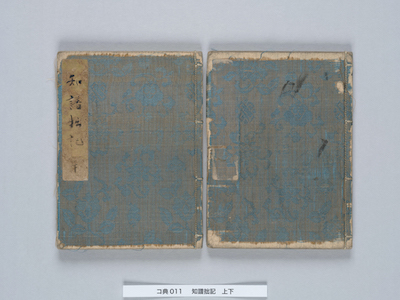 知譜拙記
コ典011 知譜拙記 上下